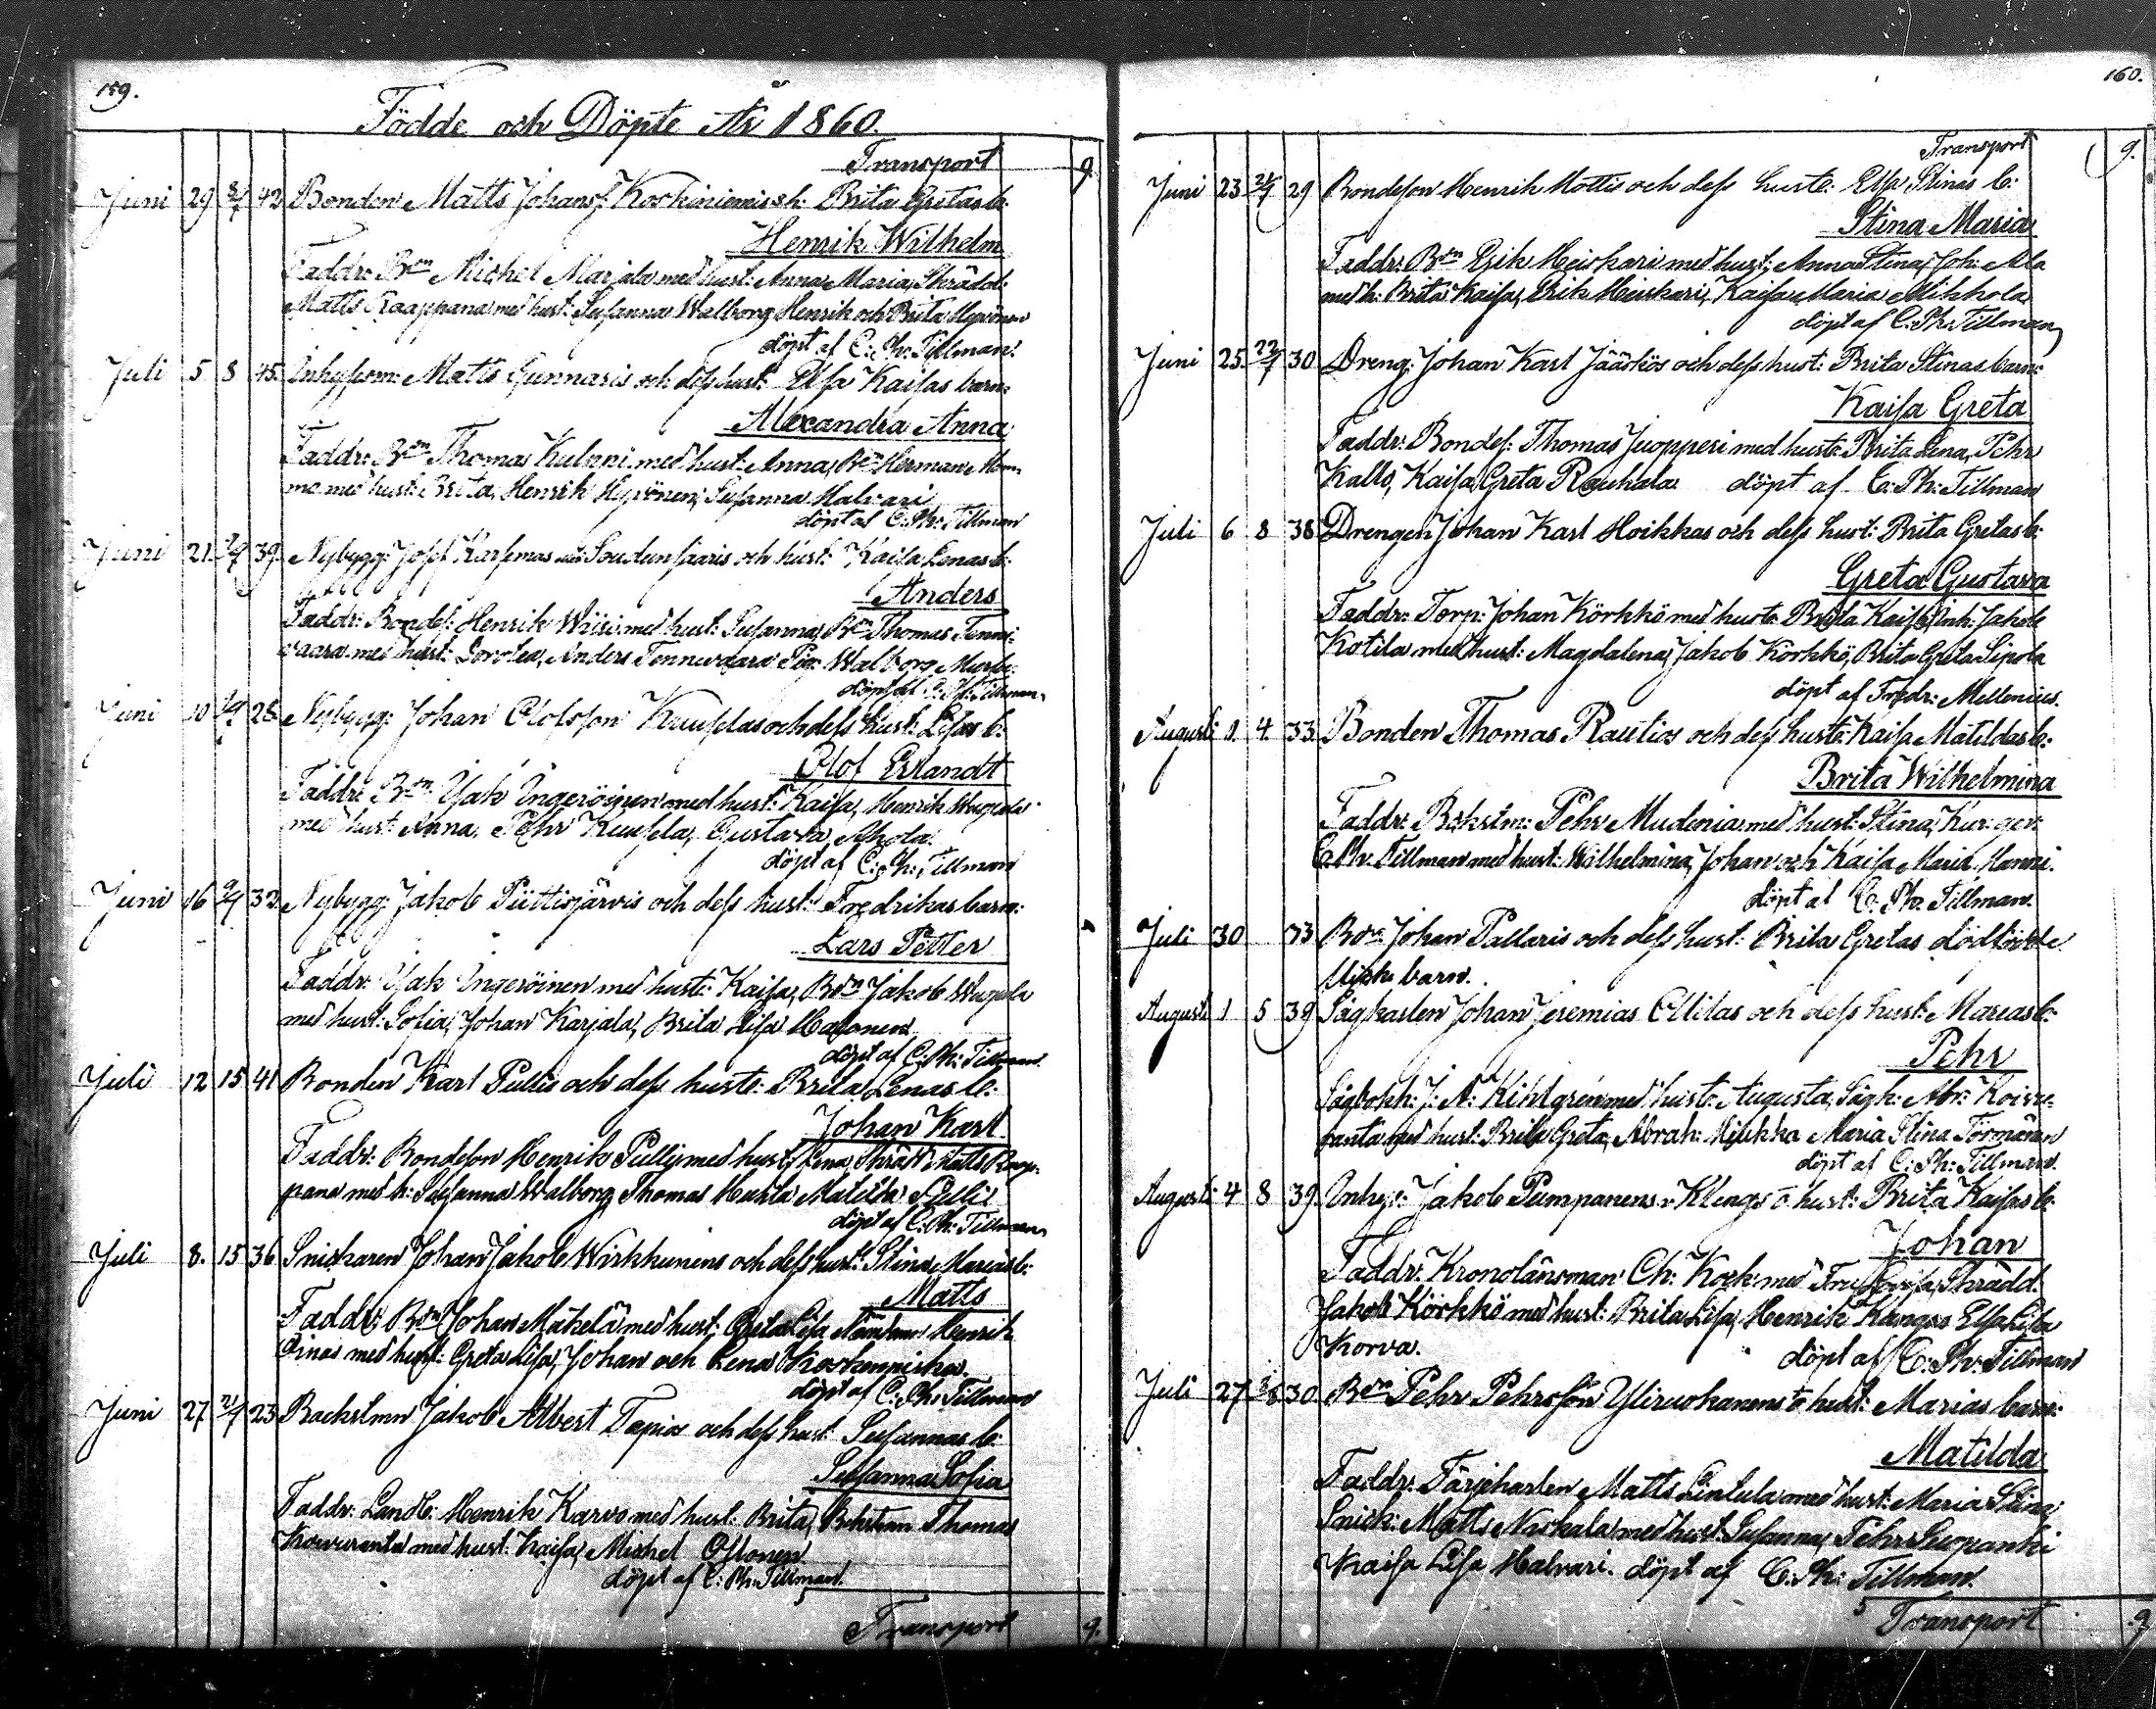 159.
Födde och Döpte År 1860.
Transport 9
Juni 29 8/7 42 Bonden Matts Johanss Koskiniemis h: Brita Gretas b:
Henrik Wilhelm
Faddr: Bdn Michel Marjala med hust: Anna Maria, Skrädd:
Matts Kaappana med hust: Susanna Walborg Henrik och Brita Hyvönen
döpt af C: Ph: Tillman.
Juli 5 8 45 Inhysesm: Matts Gunnaris och dess hust: Elsa Kaisas barn:
Alexandra Anna
Faddr: Bdn Thomas Kulppi med hust: Anna, Bdn Herman Mom-
ma med hust: Brita, Henrik Hyvönen, Susanna Halvari
döpt af C: Ph: Tillman
Juni 21. 39. Nybygg: Josef Soudunsaaris och hust: Kaisa Lenas b:
Anders
Faddr: Bondes: Henrik Wiiri med hust: Susanna, Bdn Thomas Tenni-
vaara med hust: Dorotea, Anders Tennivaara Pig: Walborg
döpt af C: Ph: Tillman
Juni 10 28. Nybygg: Johan Olofson Kuuselas och dess hust: Lisas b:
Olof Erlandt
Faddr: Bdn Isak Ingeröinen med hust: Kaisa, Henrik
med hust: Anna, Pehr Kuusela, Gustava Ahola.
döpt af C: Ph: Tillman
Juni 16 32. Nybygg: Jakob Püttisjärvis och dess hust: Fredrikas barn:
Lars Petter
Faddr: Isak Ingeröinen med hust: Kaisa, Bdn Jakob
med hust: Sofia, Johan Karjala, Brita Lisa Halonen
döpt af C: Ph: Tillman.
Juli 12 15 41 Bonden Karl Pullis och dess hust: Brita Lenas b:
Johan Karl
Faddr: Bondeson Henrik Pulli med hust: Lena, Skrädd: Matts Kaap-
pana med h: Susanna Walborg, Thomas Matilda Pulli
döpt af C: Ph: Tillman
Juli 8. 15 36 Snickaren Johan Jakob Wirkkunens och dess hust: Stina Marias b:
Matts
Faddr: Bdn Johan Mäkelä med hust: Greta Lisa Henrik
Oinas med hust: Greta Lisa, Johan och Lena Koskenniska.
döpt af C: Ph: Tillman
Juni 27 21/7 23 Backstmn Jakob Albert Tapios och dess hust: Susannas b:
Susanna Sofia
Faddr: Landb: Henrik Karvo med hust: Brita, Bkstmn Thomas
Koivuranta med hust: Kaisa, Michel Ollonen
döpt af C: Ph: Tillman.
Transport 9.
160.
Transport 9.
Juni 23 21/7 29 Bondeson Henrik Mottis och dess hust: Elsa Stinas b:
Stina Maria
Faddr: Bdn Erik Heiskari med hust: Anna Stina, Joh: Ala
med h: Brita Kaisa, Erik Heiskari, Kaisa Maria Mikkola
döpt af C: Ph: Tillman
Juni 25. 22/7 30 Dreng: Johan Karl Jääskös och dess hust: Brita Stinas barn:
Kaisa Greta
Faddr: Bondes: Thomas Juopperi med hust: Brita Lena, Pehr
Kallo, Kaisa Greta Raukala döpt af C: Ph: Tillman
Juli 6 8 38 Drengen Johan Karl Hoikkas och dess hust: Brita Gretas b:
Greta Gustava
Faddr: Torp: Johan Körkkö med hust: Brita Kaisa, Inh: Jakob
Kotila med hust: Magdalena, Jakob Körkkö, Brita Greta Sipola
döpt af Fredr: Mellenius.
Augusti 1. 4. 33. Bonden Thomas Rautios och dess hust: Kaisa Matildas b:
Brita Wilhelmina
Faddr: Bakstm: Pehr Mudenia med hust: Stina,
C: Ph: Tillman med hust: Wilhelmina, Johan och Kaisa Maria Hanni.
döpt af C: Ph: Tillman.
Juli 30 33 Bdn Johan Pallaris och dess hust: Brita Gretas dödfödde
flicke barn.
Augusti 1 5 39 Sågkarlen Johan Jeremias Ollilas och dess hust: Marias b:
Pehr
Sågbokh: J: A: Kihlgren med hust: Augusta, Sågk: Abr: Koivu-
ranta med hust: Brita Greta, Abrah: Maria Stina Törmänen
döpt af C: Ph: Tillman.
Augusti 4 8 39. Inhys: Jakob Pumpanens Klings o hust: Brita Kaisas b:
Johan
Faddr: Kronolänsman Ch: Kock med Fru Skrädd.
Jakob Körkkö med hust: Brita Lisa, Henrik Kangas Elsa Lisa
Korva.
döpt af C: Ph: Tillman
Juli 27. 30 Bdn Pehr Pehrsson Yliruokanens o hust: Marias barn:
Matilda
Faddr: Färjkarlen Matts Lintula med hust: Maria Stina,
Snick: Matts Niskala med hust: Susanna, Pehr Suopanki
Kaisa Lisa Halvari. döpt af C: Ph: Tillman.
Transport 9